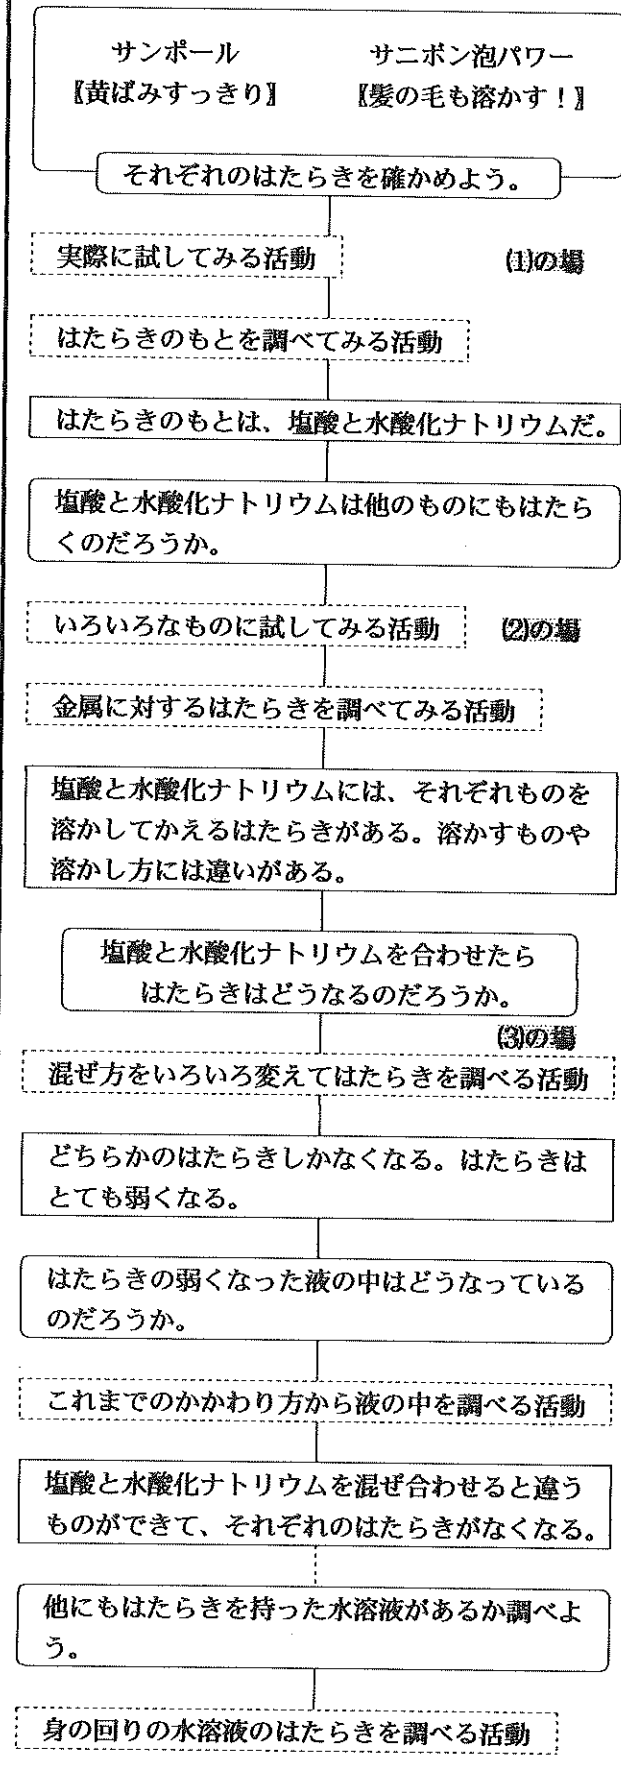 サンポール サニボン泡パワー
〖黄ばみすっきり〗 〖髪の毛も溶かす！〗
それぞれのはたらきを確かめよう。
実際に試してみる活動 (1)の場
はたらきのもとを調べてみる活動
はたらきのもとは、塩酸と水酸化ナトリウムだ。
塩酸と水酸化ナトリウムは他のものにもはたら
くのだろうか。
いろいろなものに試してみる活動 (2)の場
金属に対するはたらきを調べてみる活動
塩酸と水酸化ナトリウムには、それぞれものを
溶かしてかえるはたらきがある。溶かすものや
溶かし方には違いがある。
塩酸と水酸化ナトリウムを合わせたら
はたらきはどうなるのだろうか。
(3)の場
混ぜ方をいろいろ変えてはたらきを調べる活動
どちらかのはたらきしかなくなる。はたらきは
とても弱くなる。
はたらきの弱くなった液の中はどうなっている
のだろうか。
これまでのかかわり方から液の中を調べる活動
塩酸と水酸化ナトリウムを混ぜ合わせると違う
ものができて、それぞれのはたらきがなくなる。
他にもはたらきを持った水溶液があるか調べよ
う。
身の回りの水溶液のはたらきを調べる活動